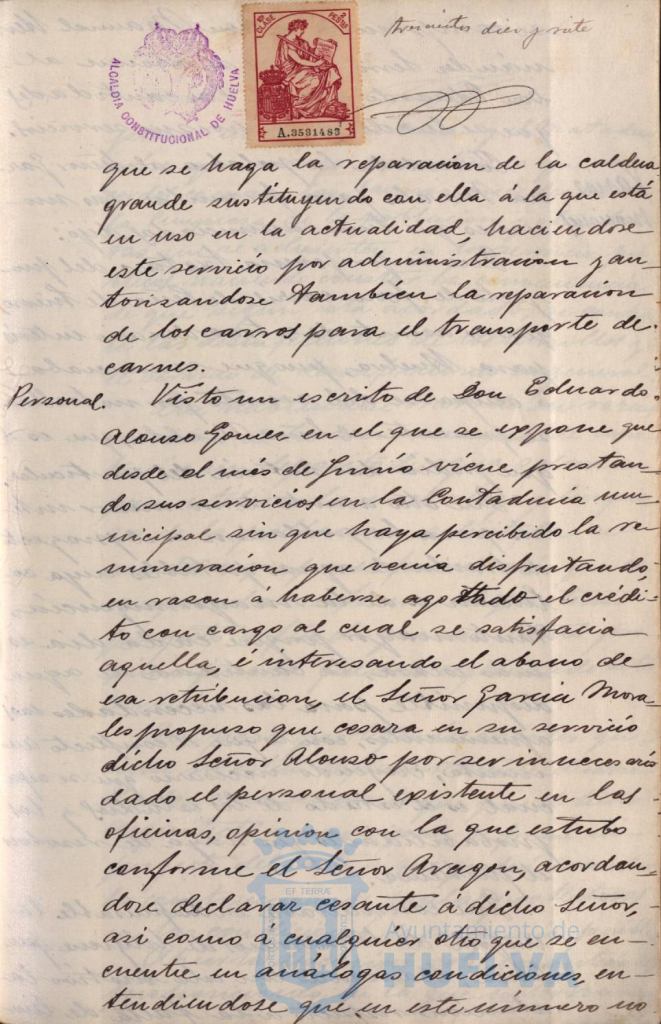 trescientos diez y siete
ALCALDIA CONSTITUCIONAL DE HUELVA
10ª CLASE
2 PESETAS
A.3531483
que se haga la reparacion de la caldera
grande sustituyendo con ella á la que está
en uso en la actualidad, haciendose
este servicio por administracion y au-
torisandose tambien la reparacion
de los carros para el transporte de
carnes.
Personal. Visto un escrito de Don Eduardo
Alonso Gomez en el que se expone que
desde el més de Junio viene prestan-
do sus servicios en la Contaduria mu-
nicipal sin que haya percibido la re-
muneracion que venia disfrutando,
en rason á haberse agotado el crédi-
to con cargo al cual se satisfacia
aquella, é interesando el abono de
esa retribucion, el Señor Garcia Mora-
les propuso que cesara en su servicio
dicho Señor Alonso por ser innecesario
dado el personal existente en las
oficinas, opinion con la que estubo
conforme el Señor Aragon, acordan-
dose declarar cesante á dicho Señor,
asi como á cualquier otro que se en-
cuentre en análogas condiciones, en-
tendiendose que en este número no
EF TERRAE
Ayuntamiento de
HUELVA